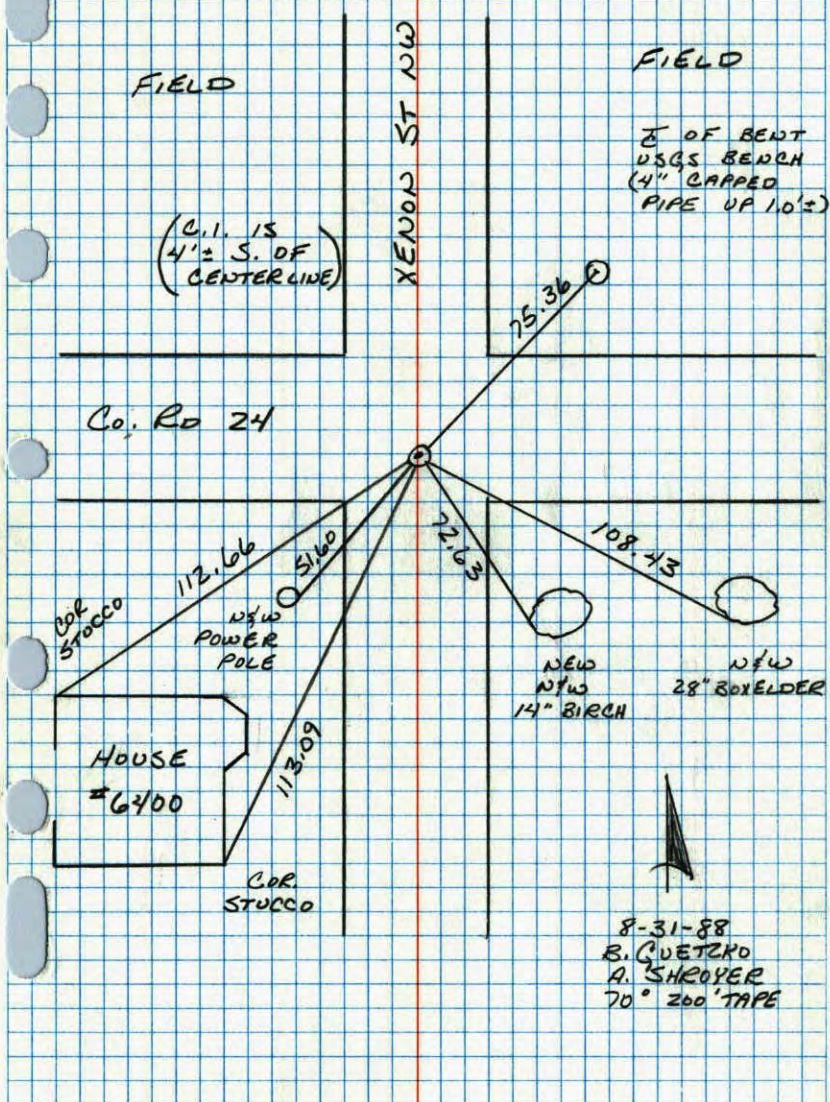 FIELD
XENON ST NW
FIELD
℄ OF BENT
USGS BENCH
(4" CAPPED
PIPE UP 1.0'±)
(C.I. IS
4'± S. OF
CENTERLINE)
75.36
Co. RD 24
112.66
51.60
72.63
108.43
COR
STOCCO
N&W
POWER
POLE
NEW
N&W
14" BIRCH
N&W
28" BOXELDER
HOUSE
#6400
113.09
COR.
STUCCO
8-31-88
B. GUETZKO
A. SHROYER
70° 200' TAPE